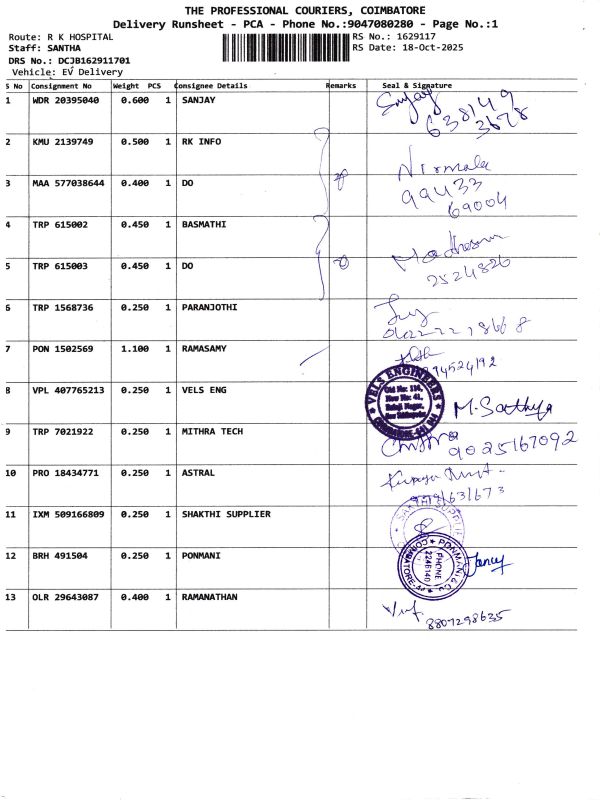 THE PROFESSIONAL COURIERS, COIMBATORE
Delivery Runsheet - PCA - Phone No.:9047080280 - Page No.:1
Route: R K HOSPITAL
Staff: SANTHA
DRS No.: DCJB162911701
Vehicle: EV Delivery
RS No.: 1629117
RS Date: 18-Oct-2025
S No Consignment No Weight PCS Consignee Details Remarks Seal & Signature
1 WDR 20395040 0.600 1 SANJAY Sanjay
638149
3678
2 KMU 2139749 0.500 1 RK INFO Nirmala
3 MAA 577038644 0.400 1 DO 99433
69004
4 TRP 615002 0.450 1 BASMATHI
5 TRP 615003 0.450 1 DO 2524826
6 TRP 1568736 0.250 1 PARANJOTHI
7 PON 1502569 1.100 1 RAMASAMY
8 VPL 407765213 0.250 1 VELS ENG VELS ENGINEERS
Old No: 114,
New No: 41,
Balaji Nagar,
M. Sathya
9 TRP 7021922 0.250 1 MITHRA TECH 9025167092
10 PRO 18434771 0.250 1 ASTRAL
11 IXM 509166809 0.250 1 SHAKTHI SUPPLIER
12 BRH 491504 0.250 1 PONMANI PONMANI & Co
PHONE
2246140
COIMBATORE
13 OLR 29643087 0.400 1 RAMANATHAN 8807298635